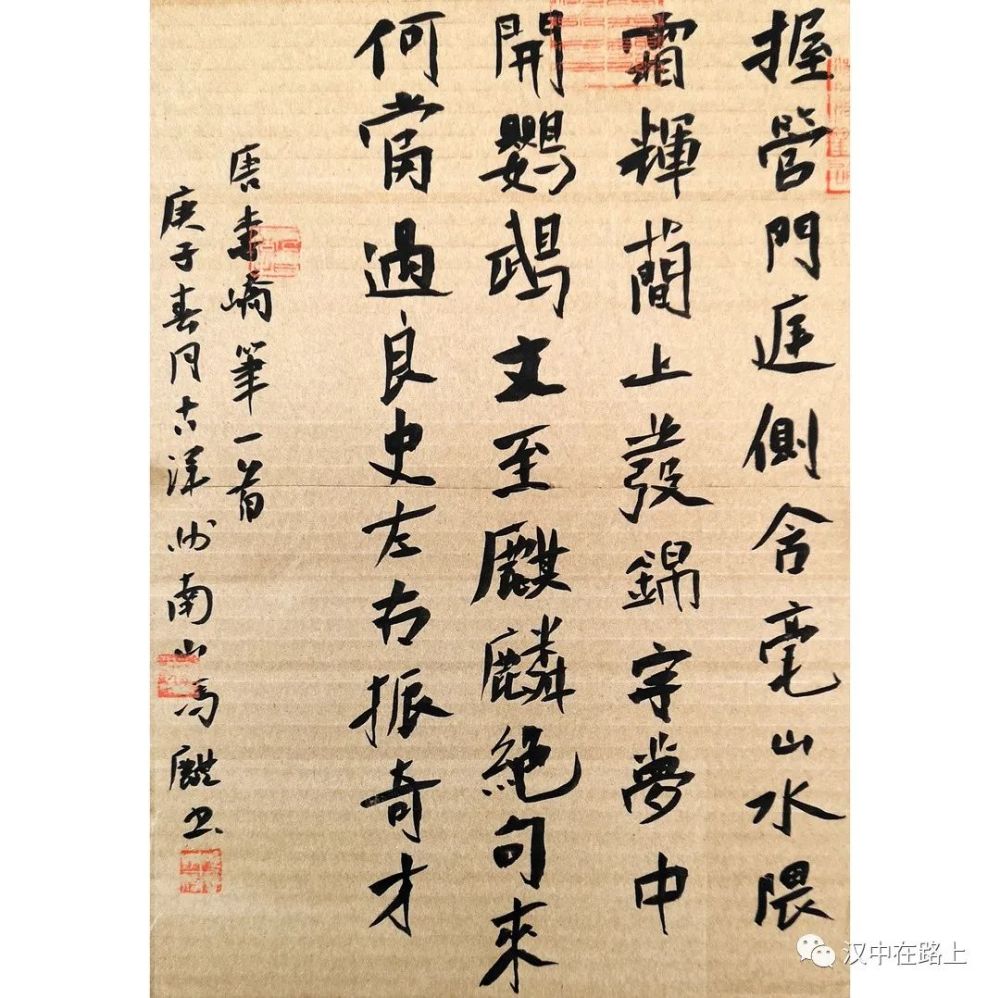 握管門庭側含毫山水隈
霜輝簡上發錦字夢中
開鸚鵡文至麒麟絶句來
何當遇良史左右振奇才
唐李嶠筆一首
庚子春月古洋州南山馬麒书
汉中在路上